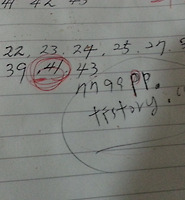 41 42 43
22. 23. 24. 25. 27.
39 .41. 43
nngapp.
tistory.